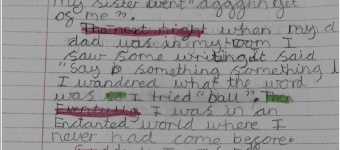 my sister went "aggghh get
of me".
The next night when my d
dad was in my room I
saw some writing it said
"Say p something something
I wandered what the word
was I tried "ball". The
Eventully I was in an
Enclanted world where I
never had come before.